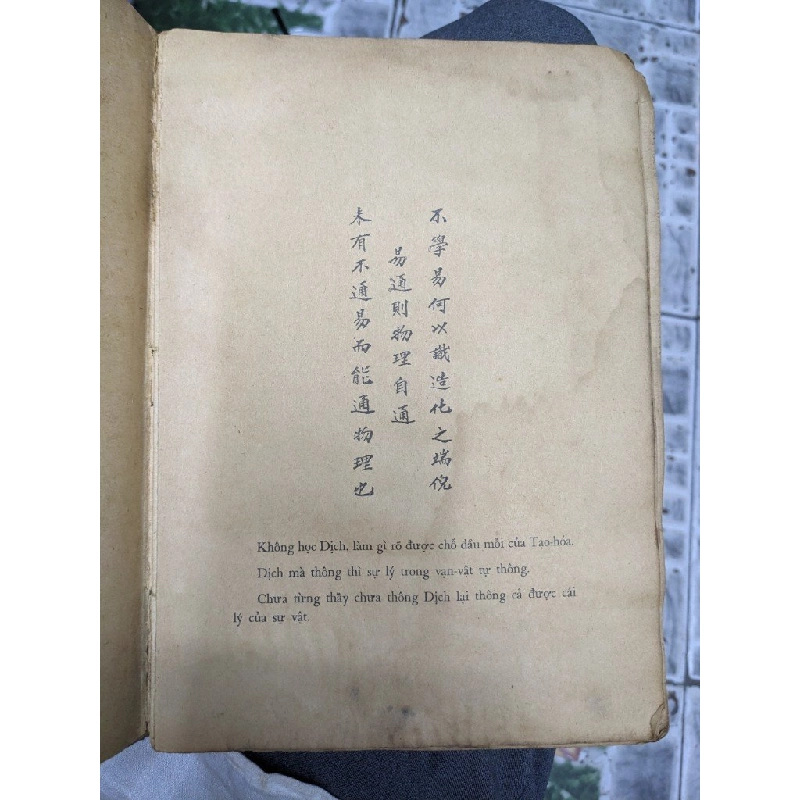 不學易何以識造化之瑞倪
易通則物理自通
未有不通易而能通物理也
Không học Dịch, làm gì rõ được chỗ đầu mối của Tạo-hóa.
Dịch mà thông thì sự lý trong vạn-vật tự thông.
Chưa từng thấy chưa thông Dịch lại thông cả được cái
lý của sự vật.